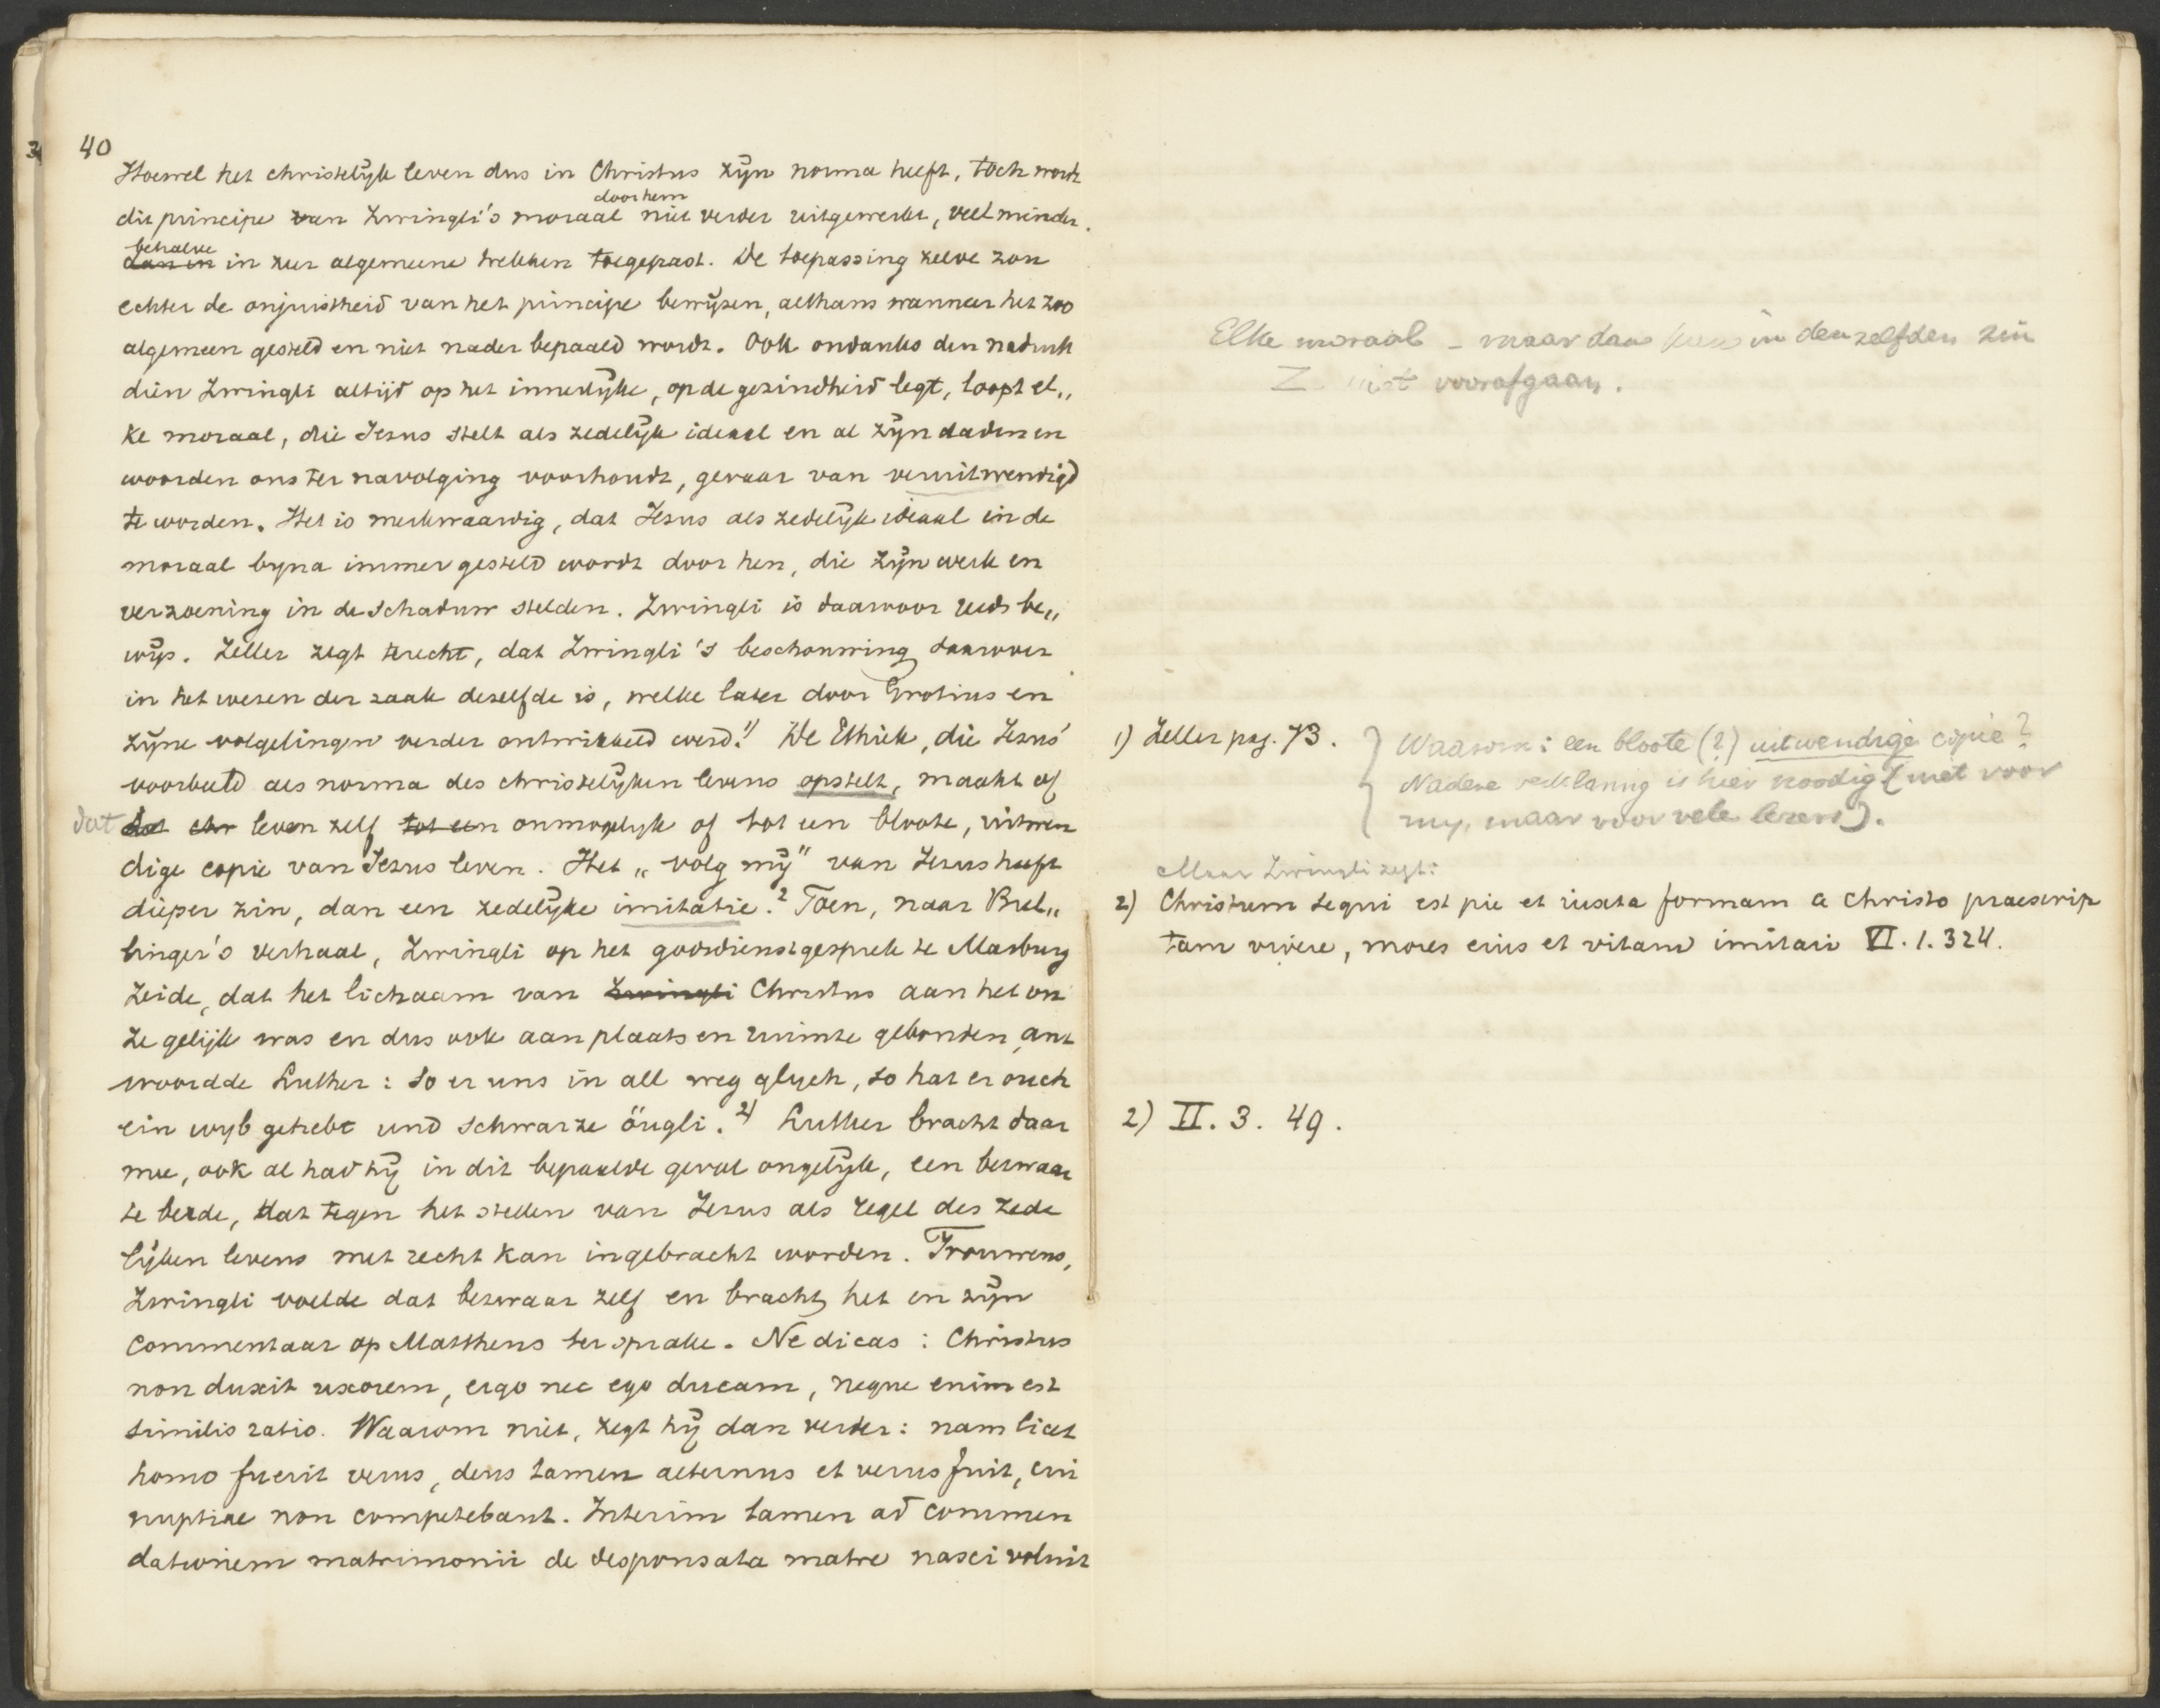 40
Hoewel het christelijk leven dus in Christus zijn norma heeft, toch wordt
door hem
dit principe van Zwingli's moraal niet verder uitgewerkt, veel minder
behalve
dan in in zeer algemeene trekken toegepast. De toepassing zelve zou
echter de onjuistheid van het principe bewijzen, althans wanneer het zoo
algemeen gesteld en niet nader bepaald wordt. Ook ondanks den nadruk
dien Zwingli altijd op het innerlijke, op de gezindheid legt, loopt el„
ke moraal, die Jezus stelt als zedelijk ideaal en al zijn daden en
woorden ons ter navolging voorhoudt, gevaar van veruitwendigd
te worden. Het is merkwaardig, dat Jezus als zedelijk ideaal in de
moraal byna immer gesteld wordt door hen, die zijn werk en
verzoening in de schaduw stelden. Zwingli is daarvoor reeds be„
wijs. Zeller zegt terecht, dat Zwingli's beschouwing daarover
in het wezen der zaak dezelfde is, welke later door Grotius en
zijne volgelingen verder ontwikkeld werd.1) De Ethiek, die Jezus'
voorbeeld als norma des christelijken levens opstelt, maakt of
dat dat chr leven zelf tot een onmogelijk of tot een bloote, uitwen
dige copie van Jezus leven. Het „volg mij" van Jezus heeft
dieper zin, dan een zedelijke imitatie.2 Toen, naar Bul„
linger's verhaal, Zwingli op het godsdienstgesprek te Marburg
zeide, dat het lichaam van Zwingli Christus aan het on
ze gelijk was en dus ook aan plaats en ruimte gebonden, ant
woordde Luther: so er uns in all weg glych, so hat er ouch
ein wyb gehebt und schwarze öugli.2) Luther bracht daar
mee, ook al had hij in dit bepaalde geval ongelijk, een bezwaar
te berde, dat tegen het stellen van Jezus als regel des zede
lijken levens met recht kan ingebracht worden. Trouwens,
Zwingli voelde dat bezwaar zelf en bracht het in zijn
Commentaar op Mattheus ter sprake. Ne dicas: Christus
non duxit uxorem, ergo nec ego ducam, neque enim est
similis ratio. Waarom niet, zegt hij dan verder: nam licet
homo fuerit verus, deus tamen aeternus et verus fuit, cui
nuptiae non competebant. Interim tamen ad commen
dationem matrimonii de desponsata matre nasci voluit
Elke moraal – maar dan in denzelfden zin
Z. niet voorafgaan.
1) Zeller pag. 73.
Waarom: een bloote (?) uitwendige copie?
Nadere verklaring is hier noodig (niet voor
my, maar voor vele lezers).
Maar Zwingli zegt:
2) Christum sequi est pie et iuxta formam a Christo praescrip
tam vivere, mores eius et vitam imitari VI. 1. 324.
2) II. 3. 49.